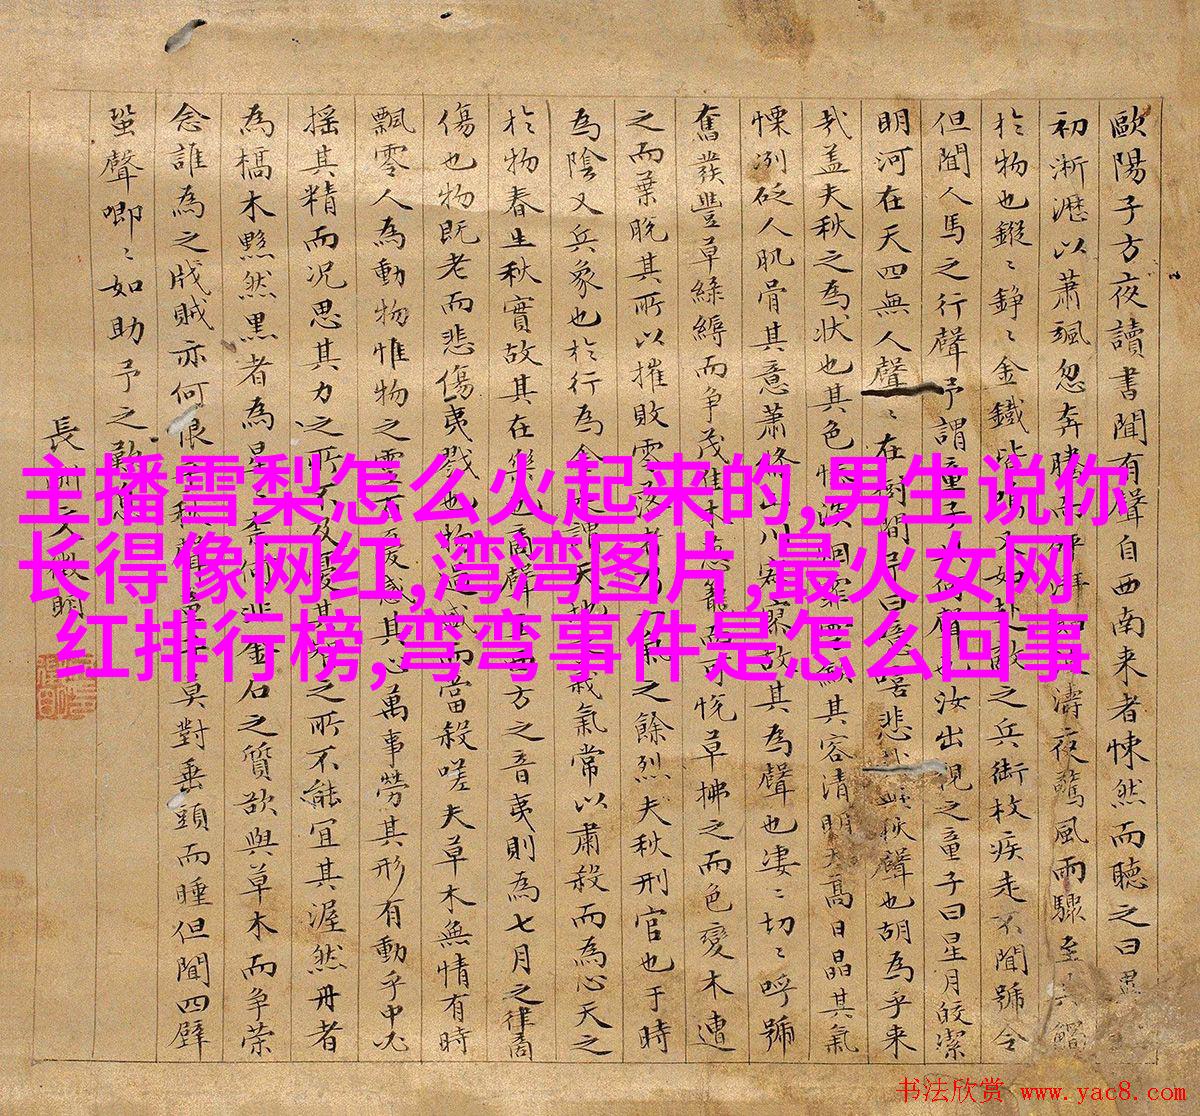 歐陽子方夜讀書聞有聲自西南来者悚然而聴之曰異
初淅瀝以蕭颯忽奔騰而砰湃濤夜驚風雨驟至其觸
於物也鏦〻錚〻金鐵皆鳴又如赴敵之兵銜枚疾走不聞號令
但聞人馬之行聲予謂童子何聲汝出視之童子曰星月皎潔
明河在天四無人聲〻在樹間予曰噫嘻悲哉此秋聲也胡為乎来
哉盖夫秋之為状也其色惨淡烟霏其容清明天高日晶其氣
慄冽砭人肌骨其意蕭條山川寂寥故其為聲也淒〻切〻呼號
奮發豐草緑縟而争茂佳木葱蘢而可悦草拂之而色變木遭
之而葉脱其所以摧敗零落者氣之餘烈夫秋刑官也于時
為陰又兵象也於行為金謂天地義氣常以肅殺而為心天之
於物春生秋實故其在樂也商聲方之音夷則為七月之律商
傷也物既老而悲傷夷戮也物過盛而當殺嗟夫草木無情有時
飄零人為動物惟物之靈百憂感其心萬事勞其形有動乎中必
揺其精而况思其力之所不及憂其智之所不能宜其渥然丹者
為槁木黟然黒者為星奈何非金石之質欲與草木而争榮
念誰為之戕賊亦何恨乎秋聲童子莫對垂頭而睡但聞四壁
蛩聲唧〻如助予之歎息
長洲文徵明
主播雪梨怎么火起来的,男生说你
长得像网红,湾湾图片,最火女网
红排行榜,弯弯事件是怎么回事
书法欣赏 www.yac8.com